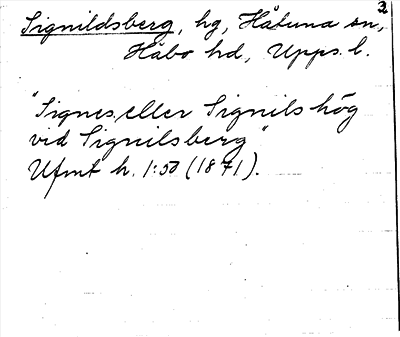 2
Signildsberg, hg, Håtuna sn,
Håbo hd, Upps. l.
"Signes eller Signils hög
vid Signilsberg"
Ufmt h. 1:50 (1871).